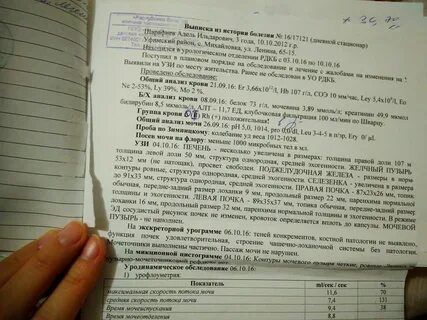 Выписка из истории болезни № 16/17121 (дневной стационар)
Шарафиев Адель Ильдарович, 3 года, 10.10.2012 г.р.
Уфимский район, с. Михайловка, ул. Ленина, 65-15.
Находился в урологическом отделении РДКБ с 03.10.16 по 10.10.16
Поступил в плановом порядке на обследование и лечение с жалобами на изменения на
Выявили на УЗИ по месту жительства. Ранее не обследовался в УО РДКБ.
Проведено обследование:
Общий анализ крови 21.09.16: Er 3,66x10 Hb 107 г/л, СОЭ 10 мм/час, Ley 5,4x10 Eo
Nc 2-53%, Ly 39%, Mo 2 %.
Б/Х анализ крови 08.09.16: белок 73 г/л, мочевина 3,89 ммоль/л; креатинин 49,9 мкмол
билирубин 8,5 мкмоль/л, АЛТ – 11,7 ЕД, клубочковая фильтрация 100 мл/мин по Шварцу.
Группа крови Rh (+) положительная!
Общий анализ мочи 26.09.16: pH 5,0, 1014, pro 0,0 Leu 3-4-5 в п/зр, Ery 0/ μl.
Проба по Зимницкому: колебание уд веса 1010-1020.
Посев мочи на флору: меньше 1000 микробных тел в мл.
УЗИ 04.10.16: ПЕЧЕНЬ - несколько увеличена в размерах: толщина правой доли 107 м
толщина левой доли 50 мм, структура однородная, средней эхогенности. ЖЕЛЧНЫЙ ПУЗЫРЬ
53x12 мм (не натощак), просвет свободен. ПОДЖЕЛУДОЧНАЯ ЖЕЛЕЗА - размеры в норм
контуры ровные, структура однородная, средней эхогенности. СЕЛЕЗЕНКА - увеличена в размера
до 91x33 мм, структура однородная, средней эхогенности. ПРАВАЯ ПОЧКА - 87x23x26 мм, топик
обычная, передне-задний размер лоханки 9 мм, продольный размер 22 мм, паренхима нормальной
толщины и эхогенности. ЛЕВАЯ ПОЧКА - 89x35x37 мм, топика обычная, передне-задний размер
лоханки 16 мм, продольный размер 32 мм, паренхима нормальной толщины и эхогенности. В режиме
ЭД сосудистый рисунок почек не изменен, кровоток определяется вплоть до капсулы. МОЧЕВОЙ
ПУЗЫРЬ - не наполнен.
На экскреторной урограмме 06.10.16: теней конкрементов, костной патологии не выявлено,
функция почек удовлетворительная, строение чашечно-лоханочной системы без патологии.
Мочеточники выполнены частично. Пассаж мочи не нарушен.
На микционной цистограмме 04.10.16: Контуры мочевого пузыря четкие, ровные.
пузырно-мочеточниковый
Уродинамическое обследование 06.10.16:
1) урофлоуметрия:
Показатель мл/сек / сек %
максимальная скорость потока мочи 11,6 70
средняя скорость потока мочи 7,4 131
Время мочеиспускания 9,4 38
Время мочеотделения 8.8